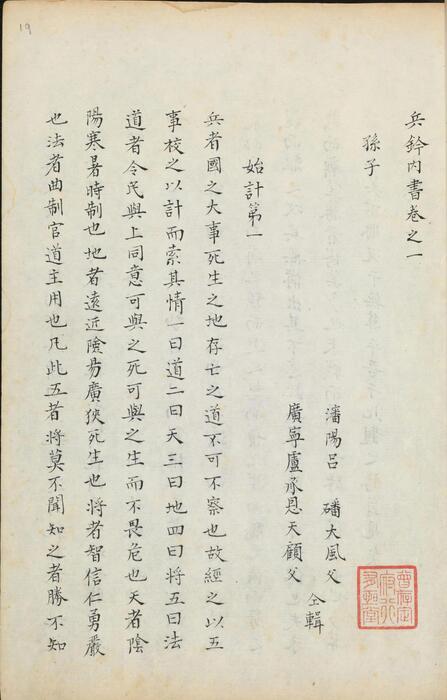 19
兵鈐内書卷之一
孫子
瀋陽吕 磻大風父
廣寧盧承恩天顧父
仝輯
始計第一
兵者國之大事死生之地存亡之道不可不察也故經之以五
事校之以計而索其情一曰道二曰天三曰地四曰将五曰法
道者令民與上同意可與之死可與之生而不畏危也天者陰
陽寒暑時制也地者遠近險易廣狹死生也将者智信仁勇嚴
也法者曲制官道主用也凡此五者将莫不聞知之者勝不知